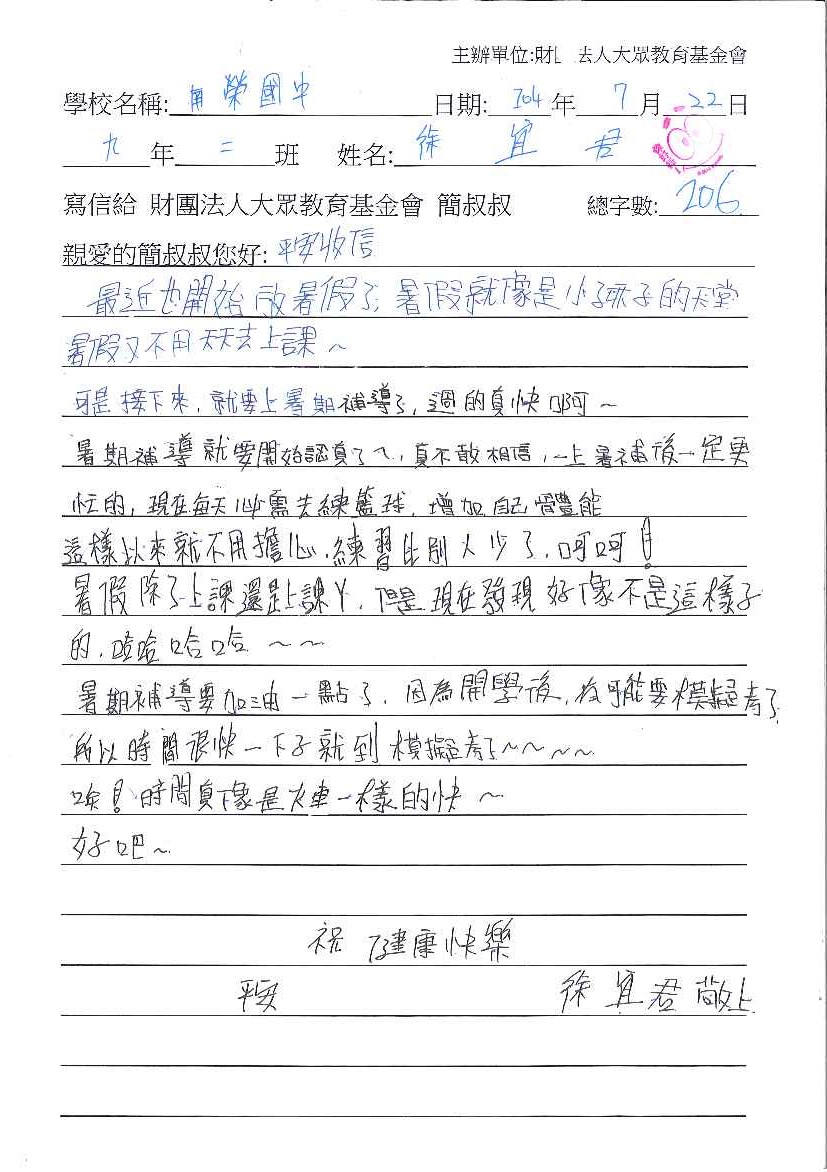 主辦單位:財 法人大眾教育基金會
學校名稱: 南榮國中 日期: 104 年 7 月 22 日
九 年 二 班 姓名: 徐宜君
寫信給 財團法人大眾教育基金會 簡叔叔 總字數: 206
親愛的簡叔叔您好: 平安收信
最近也開始放暑假了,暑假就像是小孩子的天堂
暑假又不用天天去上課~
可是接下來,就要上暑期補導了,過的真快啊~
暑期補導就要開始認真了ㄟ,真不敢相信,一上暑補後一定更
忙的,現在每天必需去練籃球,增加自己體能
這樣以來就不用擔心,練習比別人少了,呵呵!
暑假除了上課還是上課丫,但是現在發現好像不是這樣子
的,哈哈哈哈~~
暑期補導要加油一點了,因為開學後,有可能要模擬考了
所以時間很快一下子就到模擬考了~~~~
唉!時間真像是火車一樣的快~
好吧~
祝 健康快樂
平安 徐宜君敬上